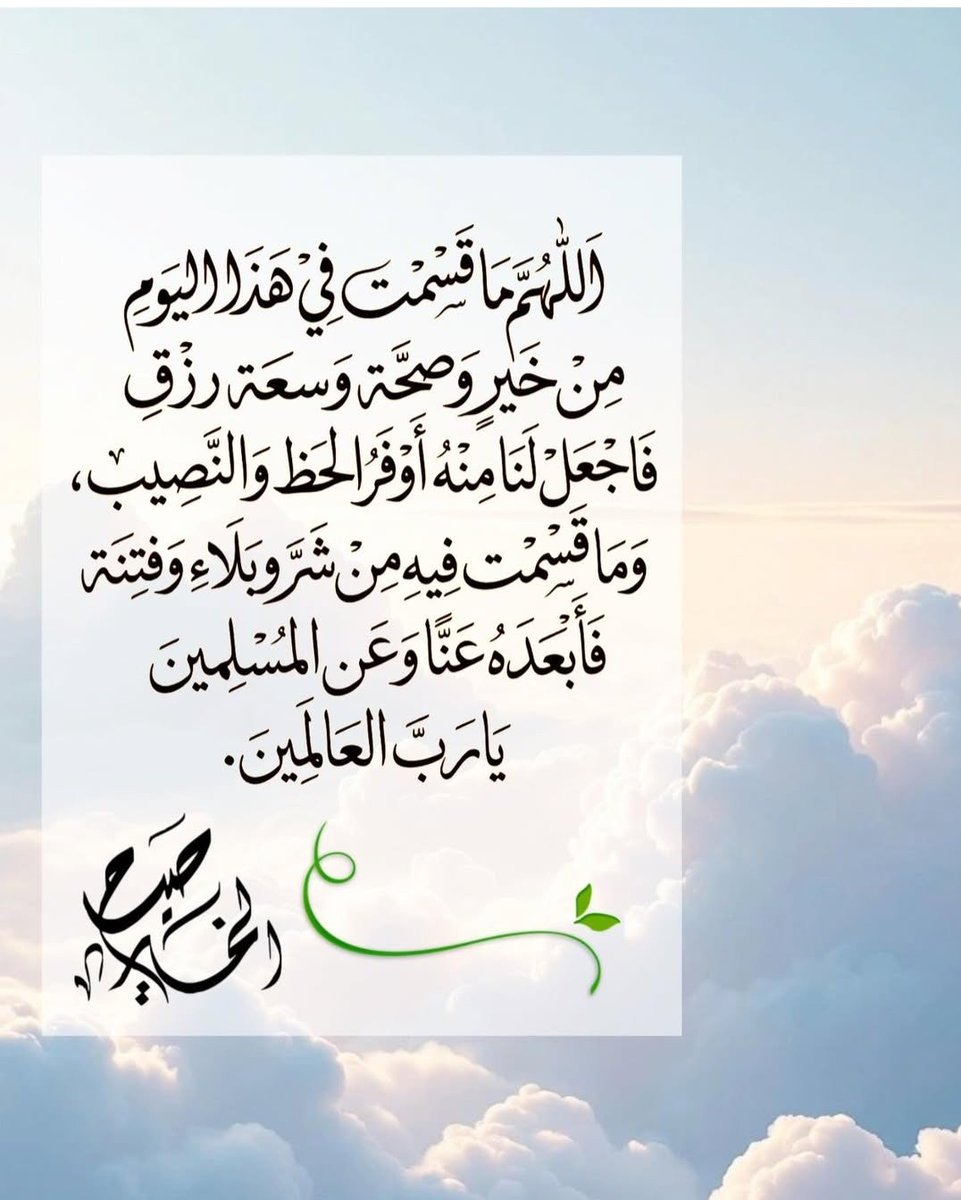 اَللّٰهُمَّ مَا قَسْمْت فِيْ هَذَا اليَومِ
مِنْ خَيرٍ وَصحَّة وَسعَة رزْقِ
فَاجْعَلْ لَنَا مِنْهُ أَوْفَرُ الحَظ وَالنَّصِيب،
وَمَا قَسِْمْت فِيهِ مِنْ شَرَّ وبَلَاءِ وَفتِنَة
فَأَبْعَدَهُ عَنَّا وَعَن المُسْلِمينَ
يَا رَبَّ العَالَمِينَ.
صباح
الخير